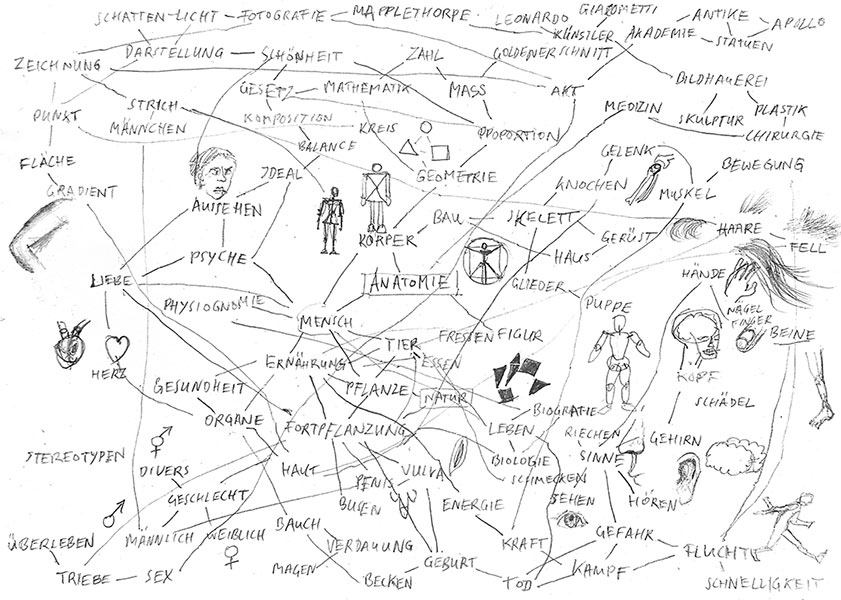 SCHATTEN-LICHT
FOTOGRAFIE
MAPPLETHORPE
LEONARDO
GIACOMETTI
KÜNSTLER
ANTIKE
APOLLO
AKADEMIE
STATUEN
DARSTELLUNG
SCHÖNHEIT
ZAHL
GOLDENER SCHNITT
ZEICHNUNG
GESETZ
MATHEMATIK
MASS
AKT
BILDHAUEREI
PUNKT
STRICH
MÄNNCHEN
KOMPOSITION
KREIS
PROPORTION
MEDIZIN
SKULPTUR
PLASTIK
CHIRURGIE
BALANCE
FLÄCHE
IDEAL
GEOMETRIE
GELENK
BEWEGUNG
GRADIENT
KNOCHEN
MUSKEL
AUSSEHEN
BAU
SKELETT
GERÜST
HAARE
FELL
KÖRPER
PSYCHE
HAUS
LIEBE
ANATOMIE
GLIEDER
HÄNDE
PHYSIOGNOMIE
MENSCH
PUPPE
NÄGEL
FINGER
FRESSEN
FIGUR
BEINE
TIER
ESSEN
HERZ
ERNÄHRUNG
KOPF
GESUNDHEIT
PFLANZE
NATUR
SCHÄDEL
ORGANE
FORTPFLANZUNG
BIOGRAFIE
LEBEN
RIECHEN
GEHIRN
STEREOTYPEN
DIVERS
HAUT
PENIS
VULVA
BIOLOGIE
SINNE
SCHMECKEN
GESCHLECHT
BUSEN
ENERGIE
SEHEN
HÖREN
ÜBERLEBEN
MÄNNLICH
WEIBLICH
BAUCH
VERDAUUNG
KRAFT
GEFAHR
FLUCHT
TRIEBE
SEX
MAGEN
BECKEN
GEBURT
TOD
KAMPF
SCHNELLIGKEIT